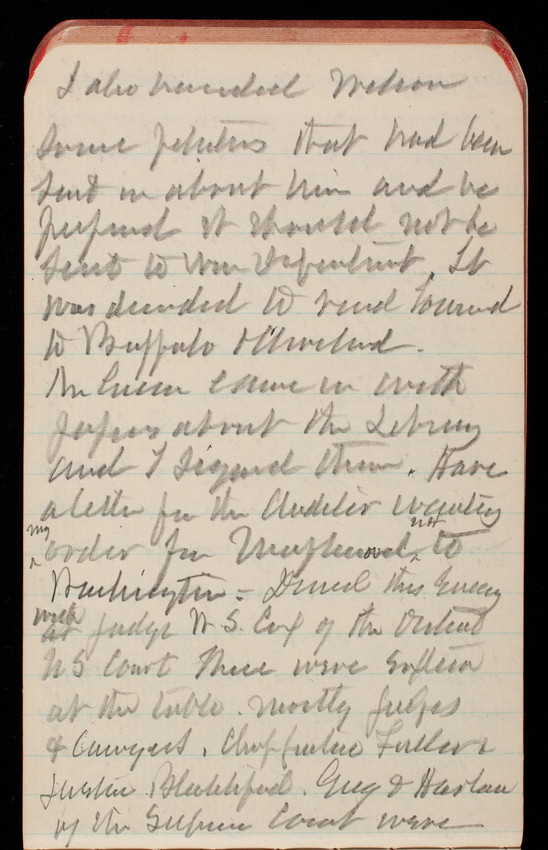 I also handed Nelson
some petitions that had been
sent in about him and he
prefered it should not be
sent to War Department. It
was decided to send
to Buffalo & Cleveland.
came in with
papers about the Library
and I signed them. Have
a letter from the Auditor wanting
my order from not to
Washington = Dined this Evening
with Judge W. S. Cox of the District
US Court There were sixteen
at the table. mostly judges
& lawyers. Chief Justice Fuller &
Justice Blatchford. Gray & Harlan
of the Supreme Court were